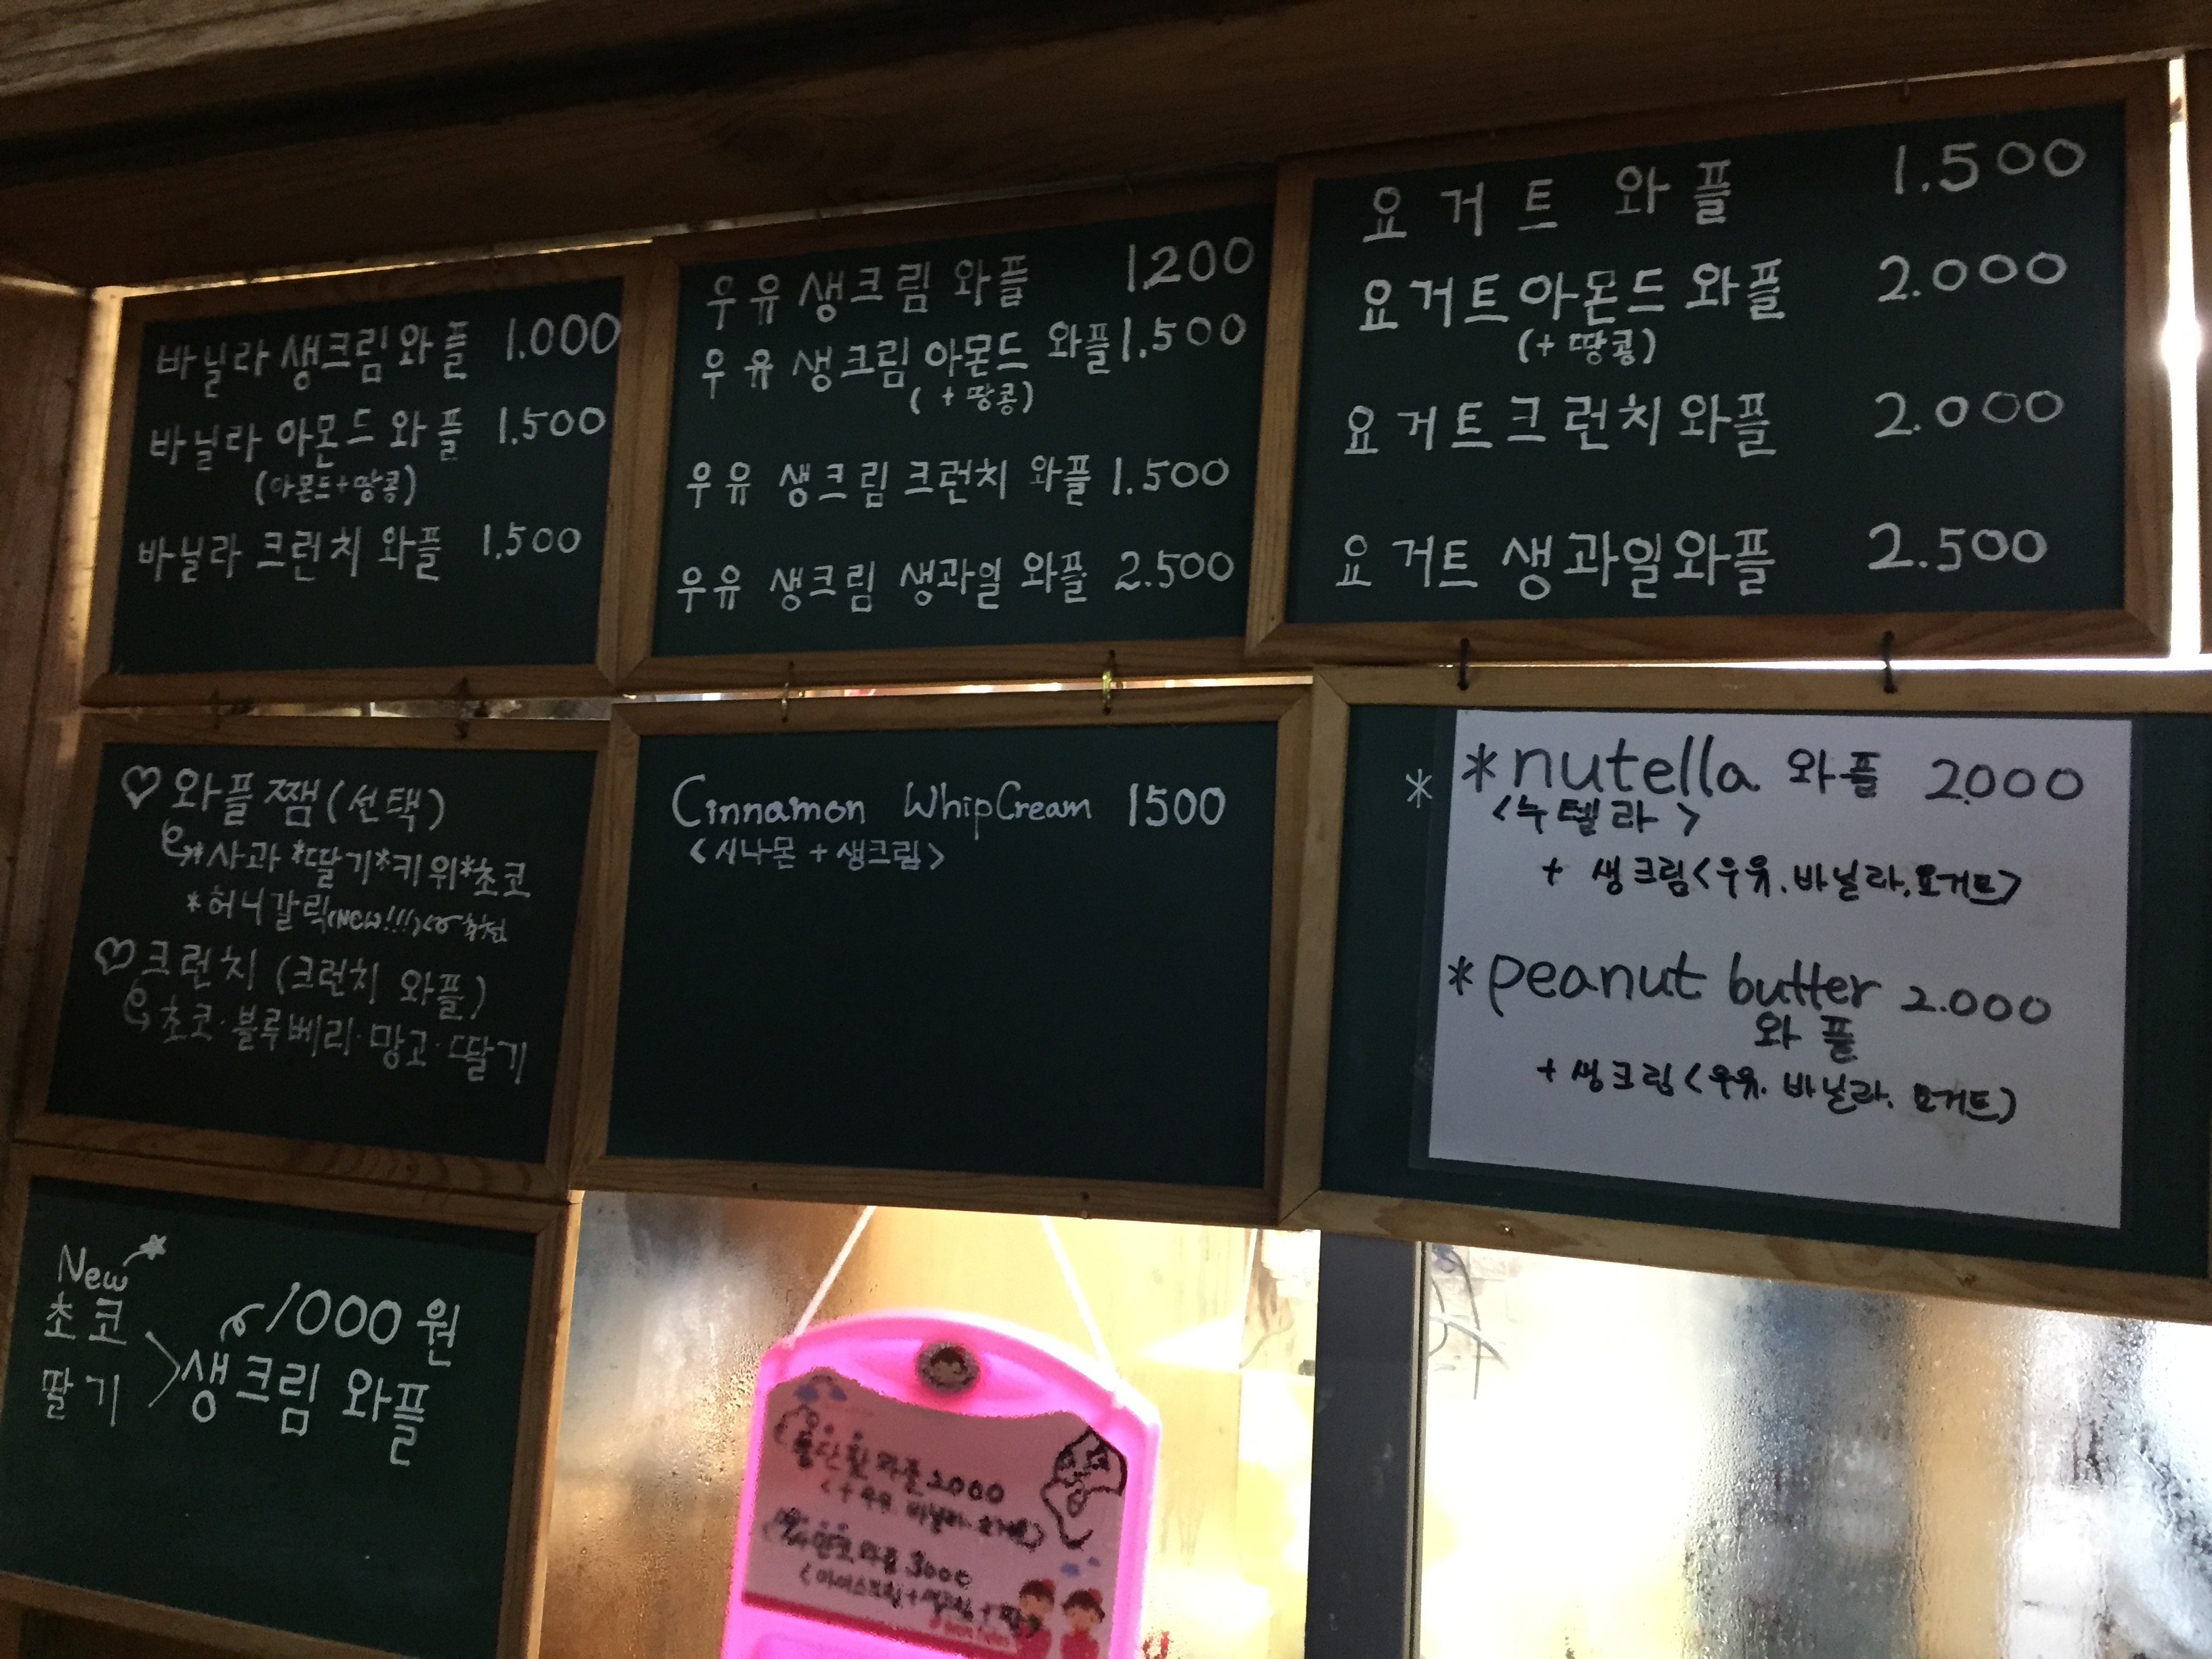 바닐라 생크림 와플 1.000
바닐라 아몬드 와플 1.500
(아몬드+땅콩)
바닐라 크런치 와플 1.500
우유 생크림 와플 1.200
우유 생크림 아몬드 와플 1.500
(+땅콩)
우유 생크림 크런치 와플 1.500
우유 생크림 생과일 와플 2.500
요거트 와플 1.500
요거트 아몬드 와플 2.000
(+땅콩)
요거트 크런치 와플 2.000
요거트 생과일 와플 2.500
♡ 와플 쨈 (선택)
*사과 *딸기 *키위 *초코
*허니갈릭 (New!!!) 추천
♡ 크런치 (크런치 와플)
초코·블루베리·망고·딸기
Cinnamon WhipCream 1500
<시나몬 + 생크림>
* *nutella 와플 2000
<누텔라>
+ 생크림<우유.바닐라.요거트>
*peanut butter 2.000
와플
+ 생크림<우유. 바닐라. 요거트>
New
초코
딸기
1000원
생크림 와플
와플 2000
<+우유. 바닐라.
와플 3000
<아이스크림+